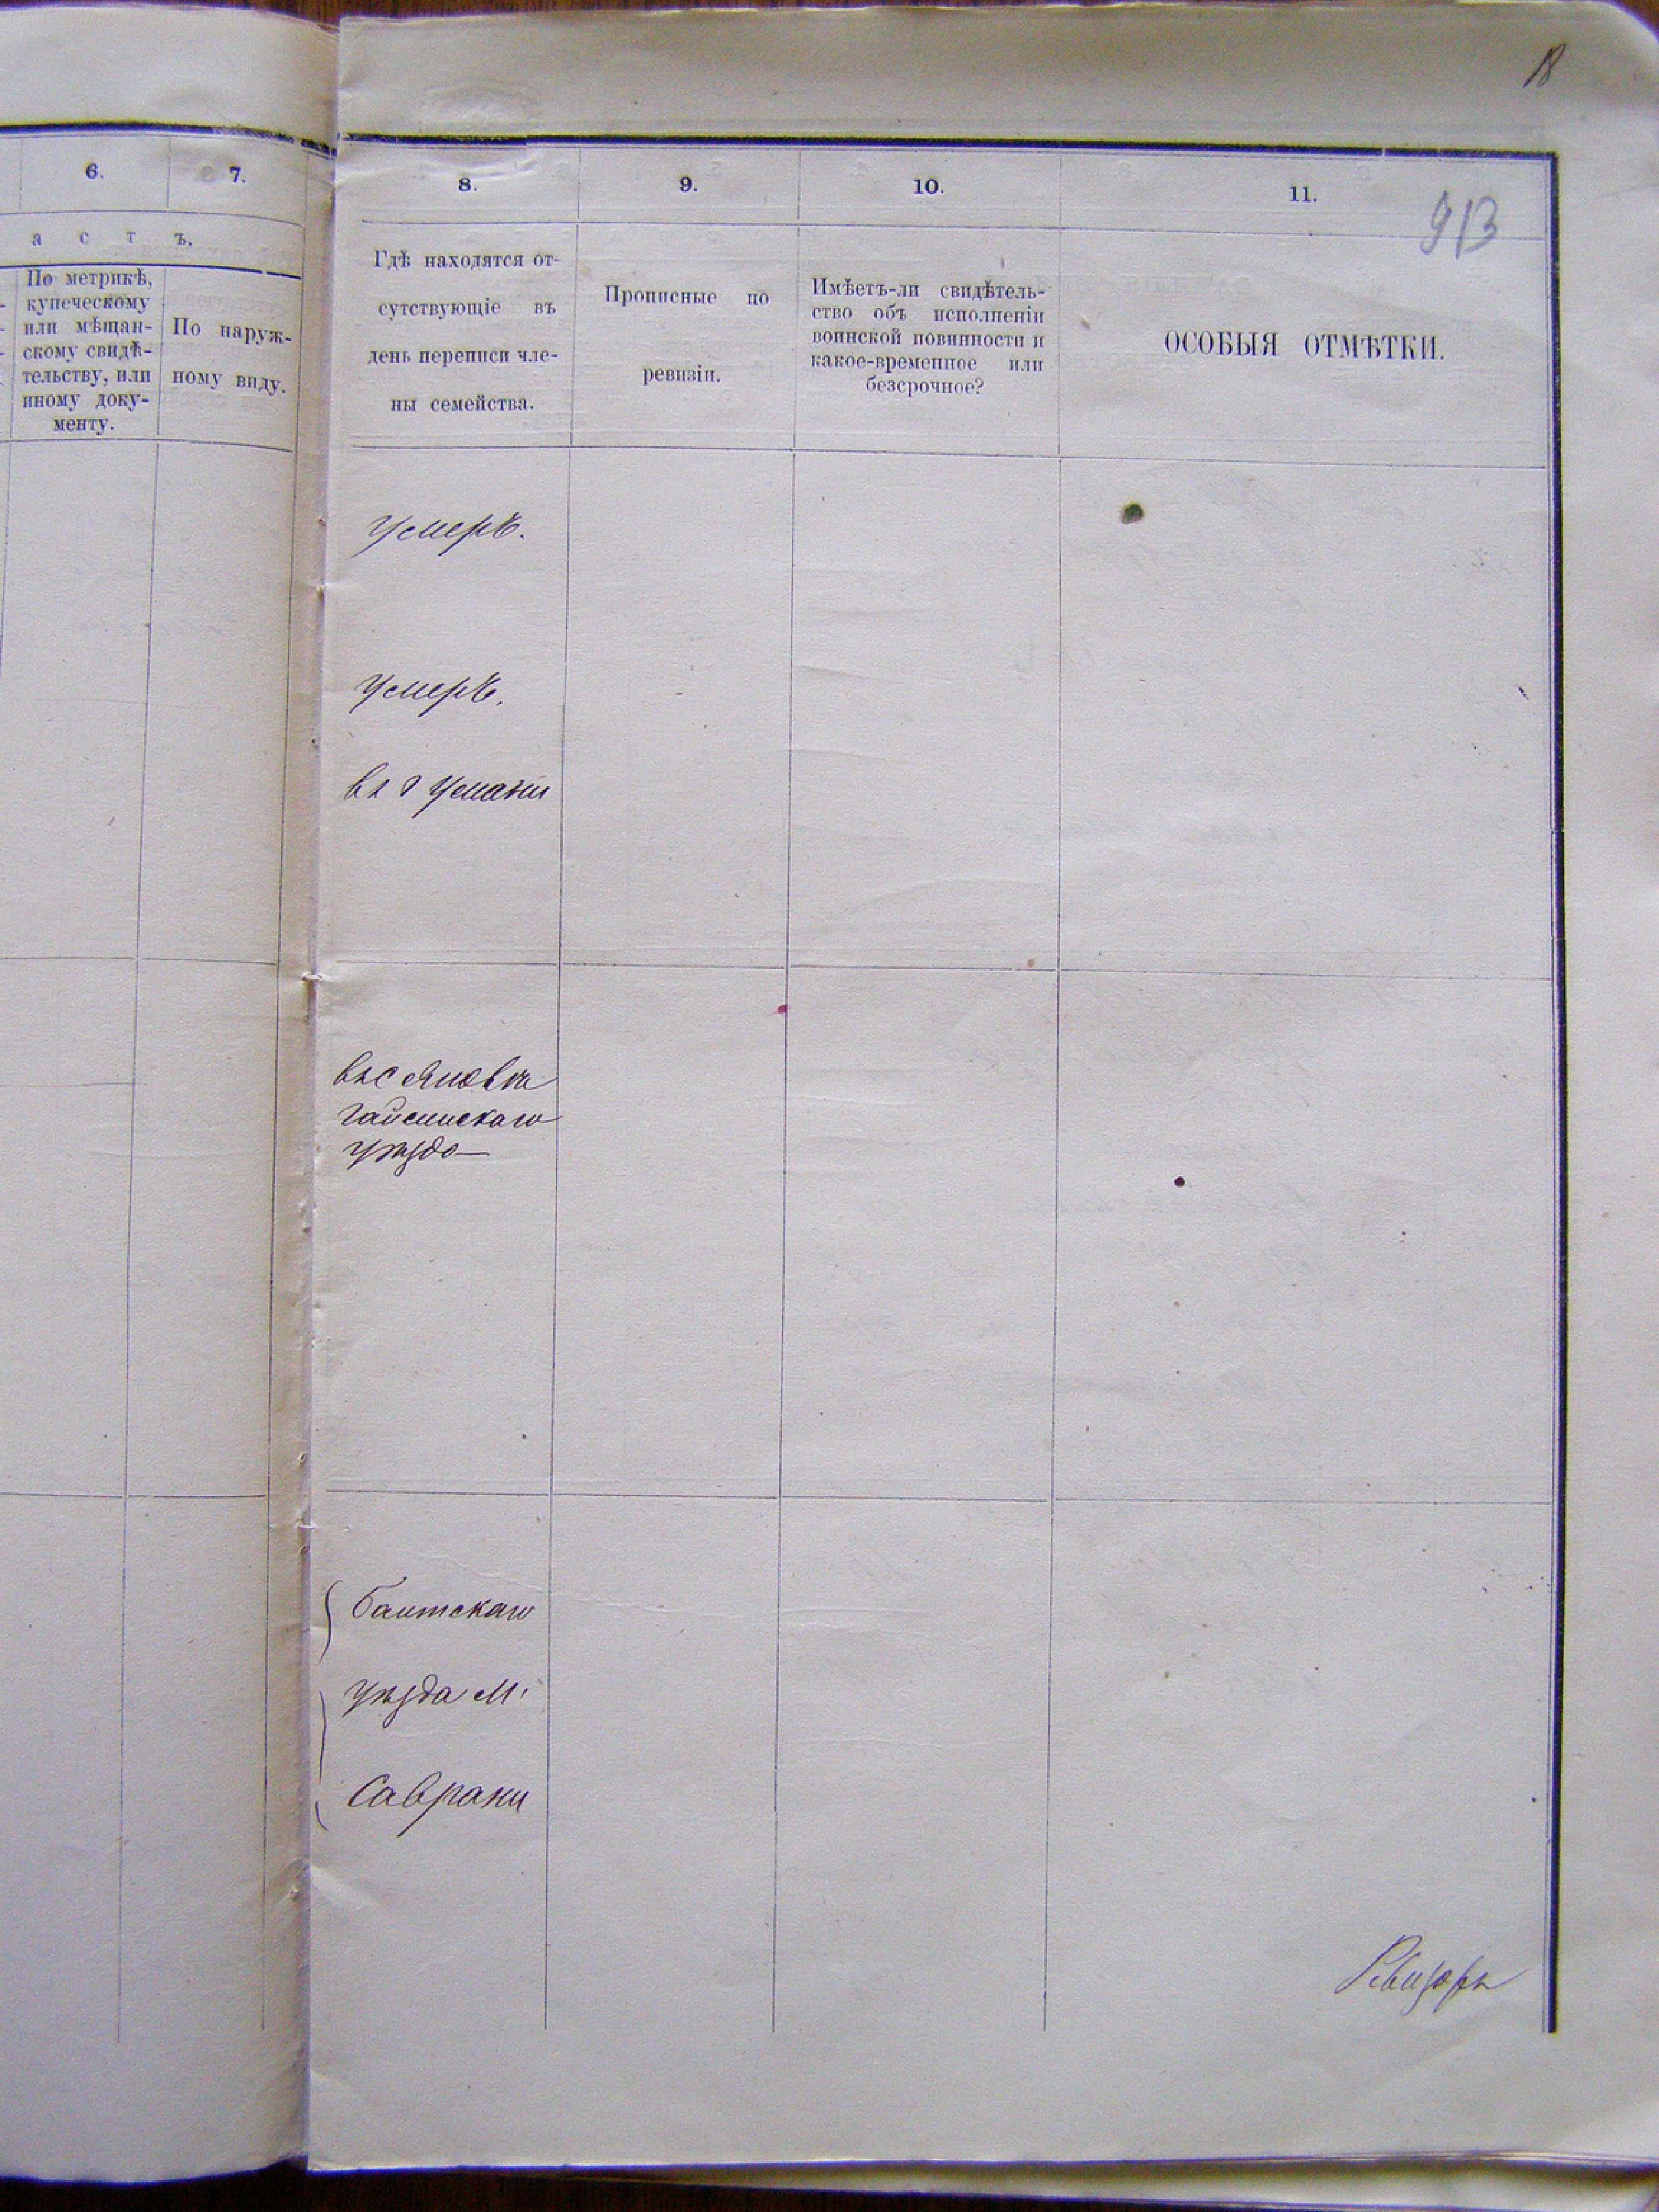 18
6.
7.
8.
9.
10.
11.
913
а с т ъ.
По метрикѣ,
купеческому
или мѣщан-
скому свидѣ-
тельству, или
иному доку-
менту.
По наруж-
ному виду.
Гдѣ находятся от-
сутствующіе въ
день переписи чле-
ны семейства.
Прописные по
ревизіи.
Имѣетъ-ли свидѣтель-
ство объ исполненіи
воинской повинности и
какое-временное или
безсрочное?
ОСОБЫЯ ОТМѢТКИ.
умеръ.
умеръ.
въ г Умани
въ с
Гайсинскаго
уѣзда
Балтскаго
уѣзда м.
Саврани
Ревизоръ